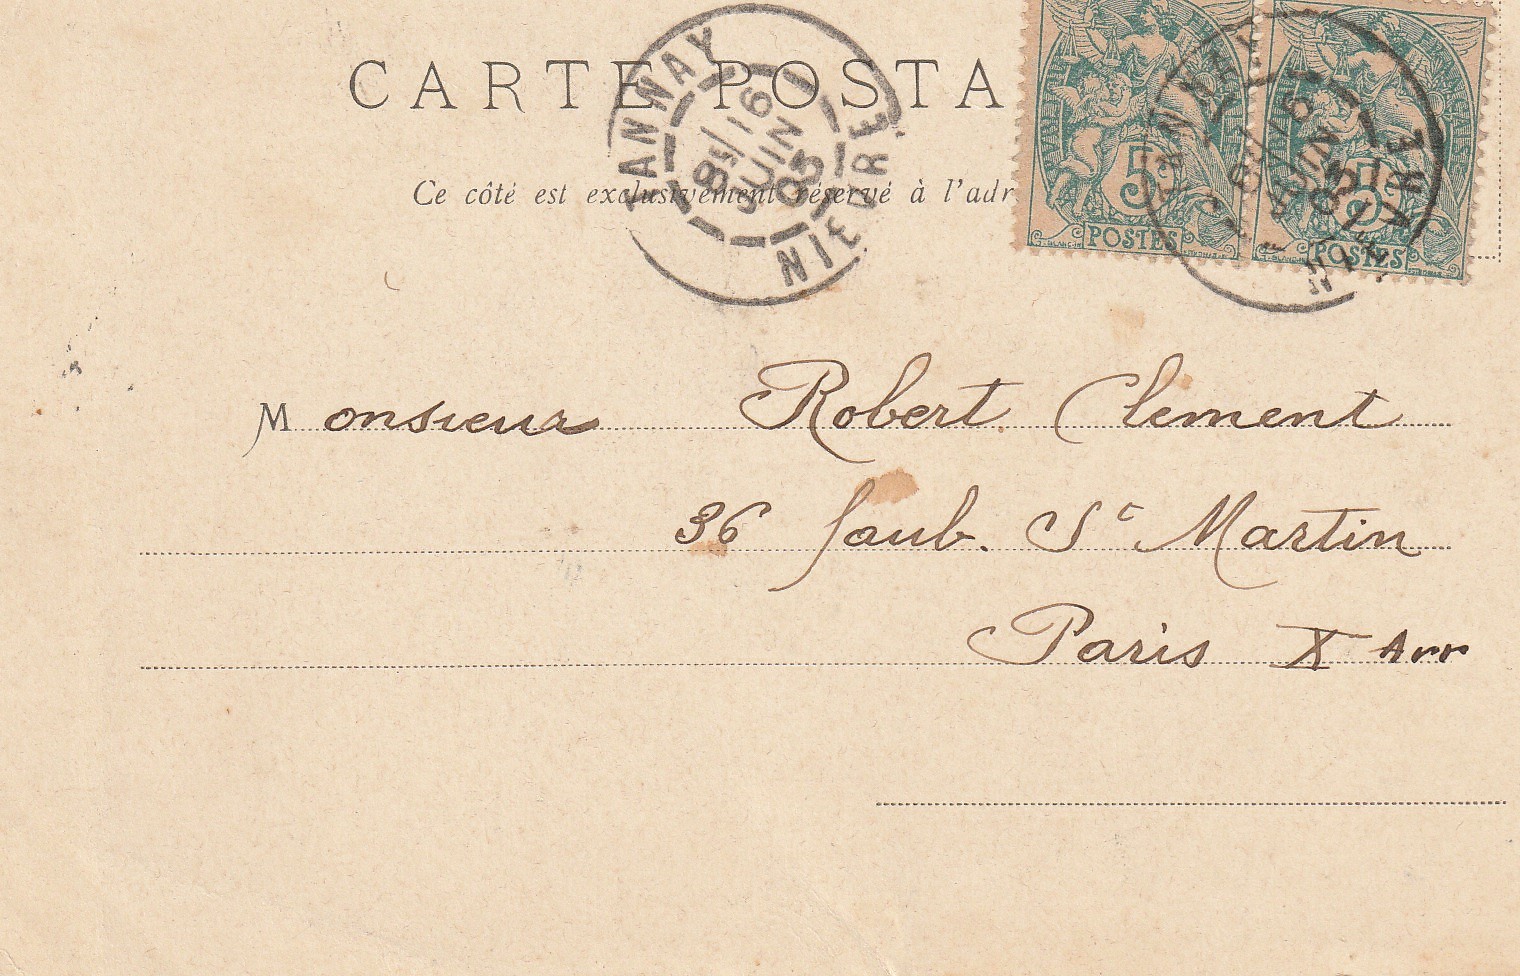 CARTE POSTA
Ce côté est exclusivement réservé à l'adr
TANNAY
8 S / 16
JUIN
03
NIEVRE
5
POSTES
5
POSTES
Monsieur Robert Clement
36 faub. St Martin
Paris X Arr